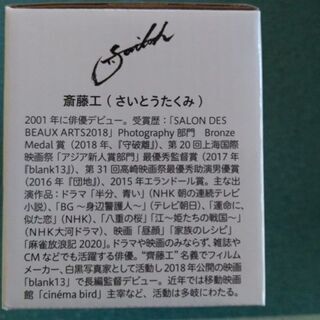 斎藤工（さいとうたくみ）
2001年に俳優デビュー。受賞歴：「SALON DES
BEAUX ARTS2018」Photography部門　Bronze
Medal賞（2018年、『守破離』）、第20回上海国際
映画祭「アジア新人賞部門」最優秀監督賞（2017年
『blank13』）、第31回高崎映画祭最優秀助演男優賞
（2016年『団地』）、2015年エランドール賞。主な出
演作品：ドラマ「半分、青い」（NHK朝の連続テレビ
小説）、「BG ～身辺警護人～」（テレビ朝日）、「運命に、
似た恋」（NHK）、「八重の桜」「江～姫たちの戦国～」
（NHK大河ドラマ）、映画「昼顔」「家族のレシピ」
「麻雀放浪記2020」。ドラマや映画のみならず、雑誌や
CMなどでも活躍する俳優。“齊藤工”名義でフィルム
メーカー、白黒写真家として活動し2018年公開の映画
『blank13』で長編監督デビュー。近年では移動映画
館「cinéma bird」主宰など、活動は多岐にわたる。